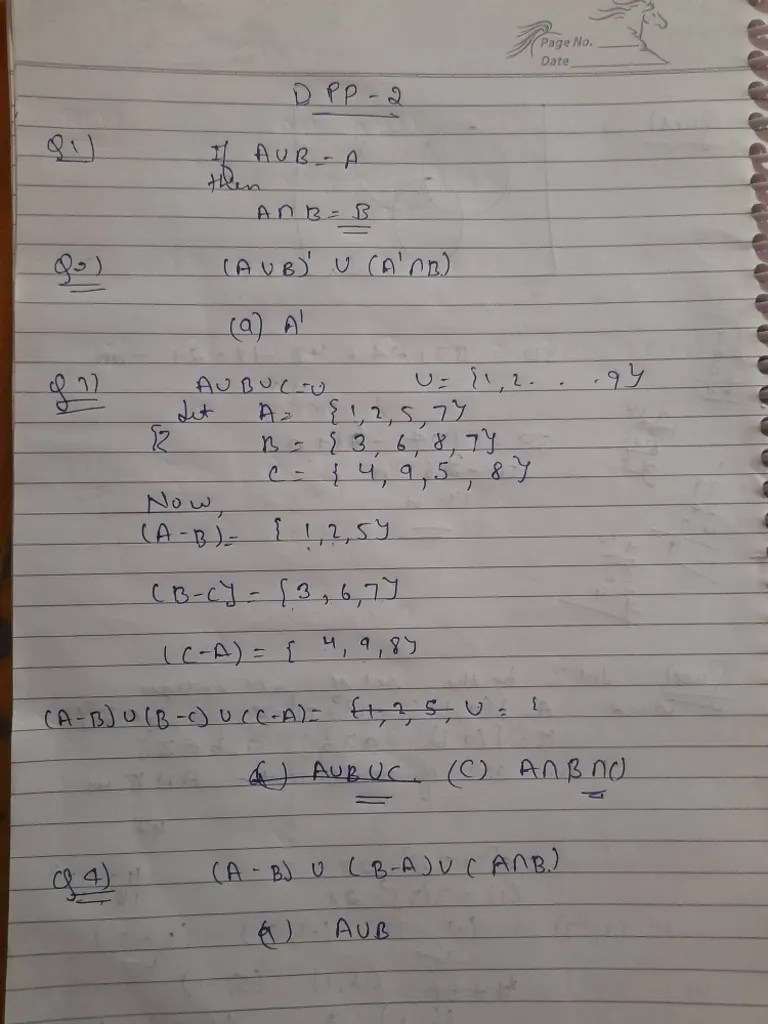 Page No.
Date
DPP-2
Q1) If A∪B = A
then
A∩B = B
Q2) (A∪B)' ∪ (A'∩B)
(a) A'
Q3) A∪B∪C=U U = {1,2. . . .9}
Let A = {1,2,5,7}
B = {3, 6, 8, 7}
C = {4, 9, 5, 8}
Now,
(A-B) = {1,2,5}
(B-C} = {3, 6, 7}
(C-A) = {4, 9, 8}
(A-B)∪(B-C)∪(C-A) = {1, 2, 5, U = {
A∪B∪C. (C) A∩B∩C)
Q4) (A-B) ∪ (B-A) ∪ (A∩B)
A∪B